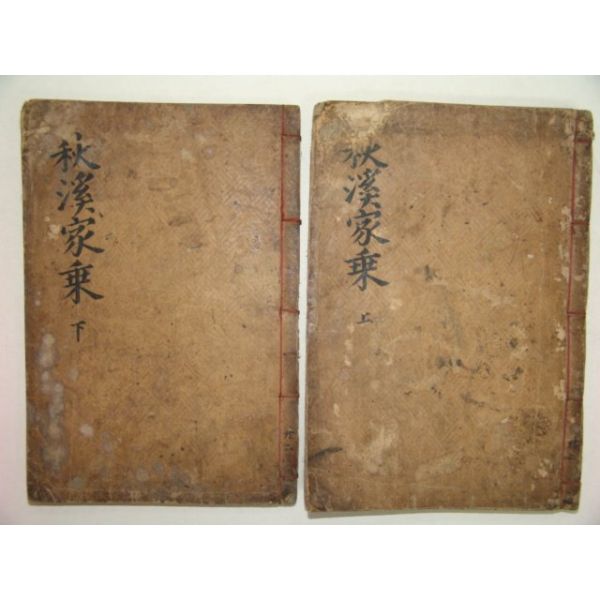 秋溪家乗
下
秋溪家乗
上